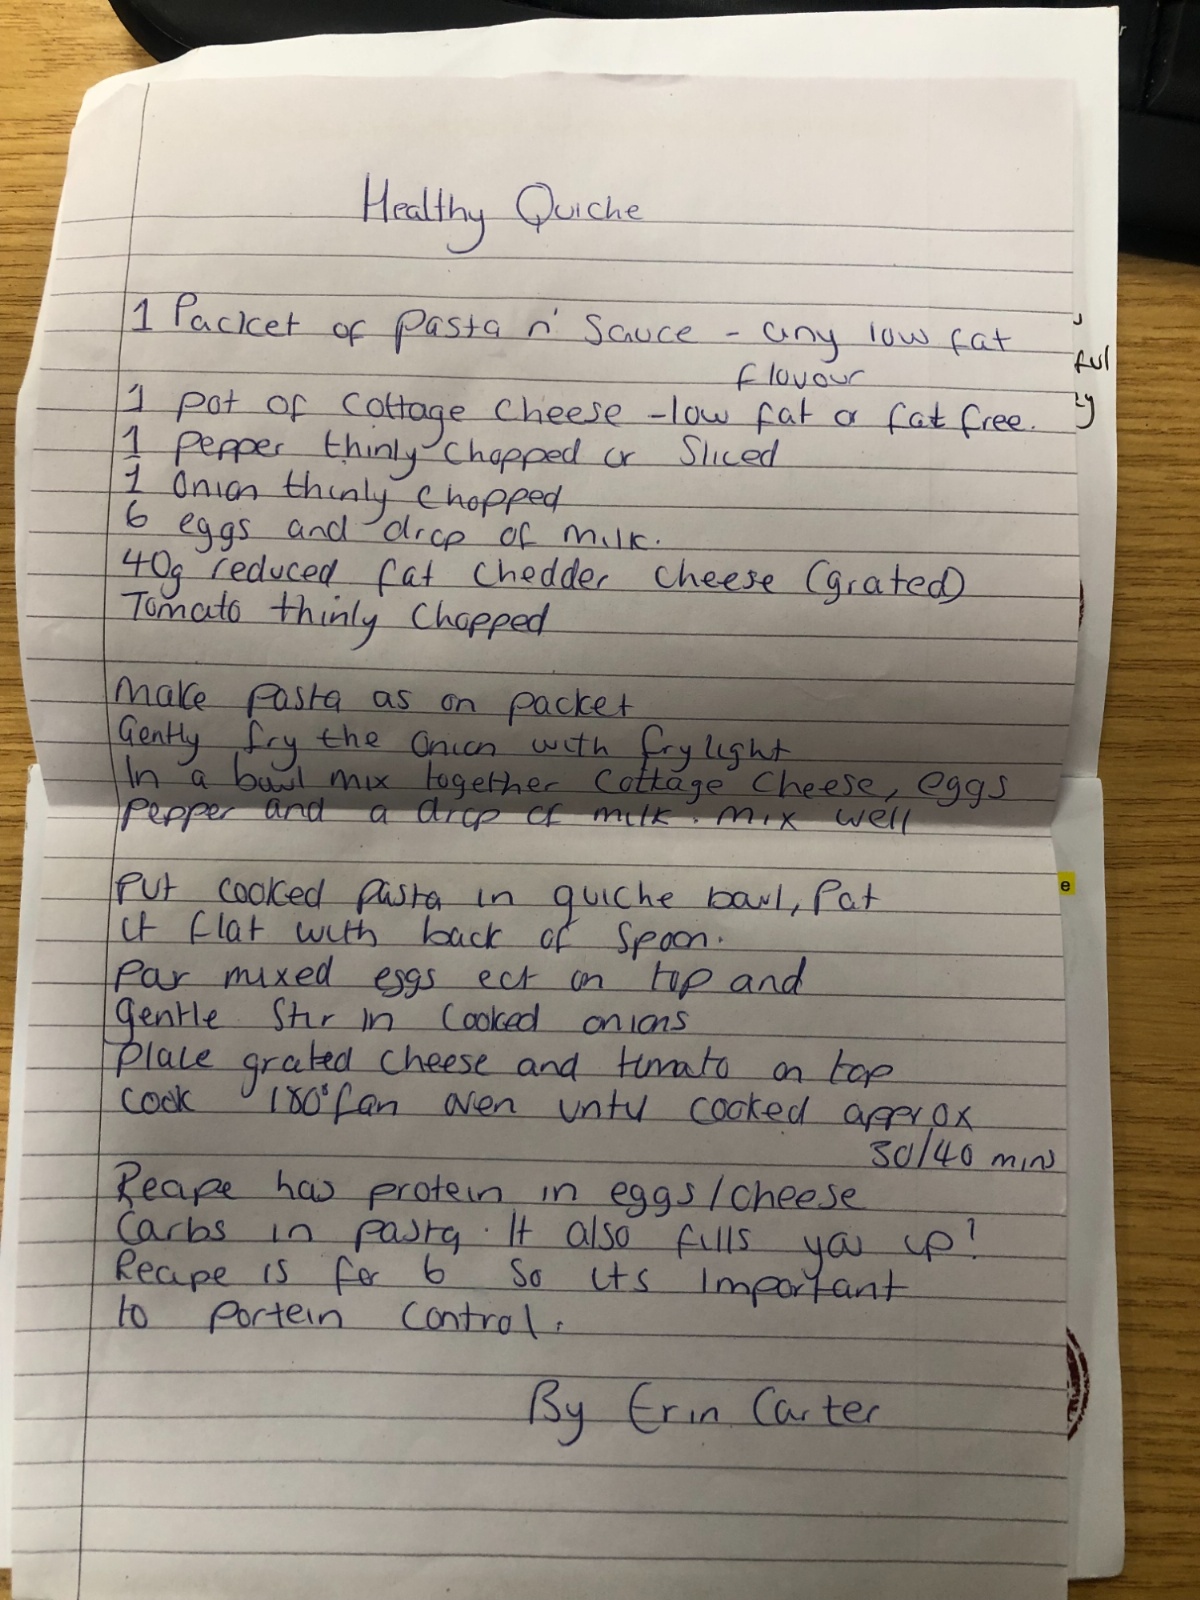 Healthy Quiche
1 Packet of pasta n' Sauce - any low fat
flavour
1 pot of Cottage Cheese - low fat or fat free.
1 pepper thinly chopped or Sliced
1 onion thinly chopped
6 eggs and drop of milk.
40g reduced fat chedder cheese (grated)
Tomato thinly Chopped
Make pasta as on packet
Gently fry the onion with frylight
In a bowl mix together Cottage Cheese, eggs
pepper and a drop of milk. Mix well
Put cooked pasta in quiche bowl, Pat
it flat with back of Spoon.
Pour mixed eggs ect on top and
gentle Stir in Cooked onions
Place grated cheese and tomato on top
Cook 180° fan oven until cooked approx
30/40 mins
Recipe has protein in eggs/cheese
Carbs in pasta. It also fills you up!
Recipe is for 6 So its important
to portein control.
By Erin Carter
ful
e